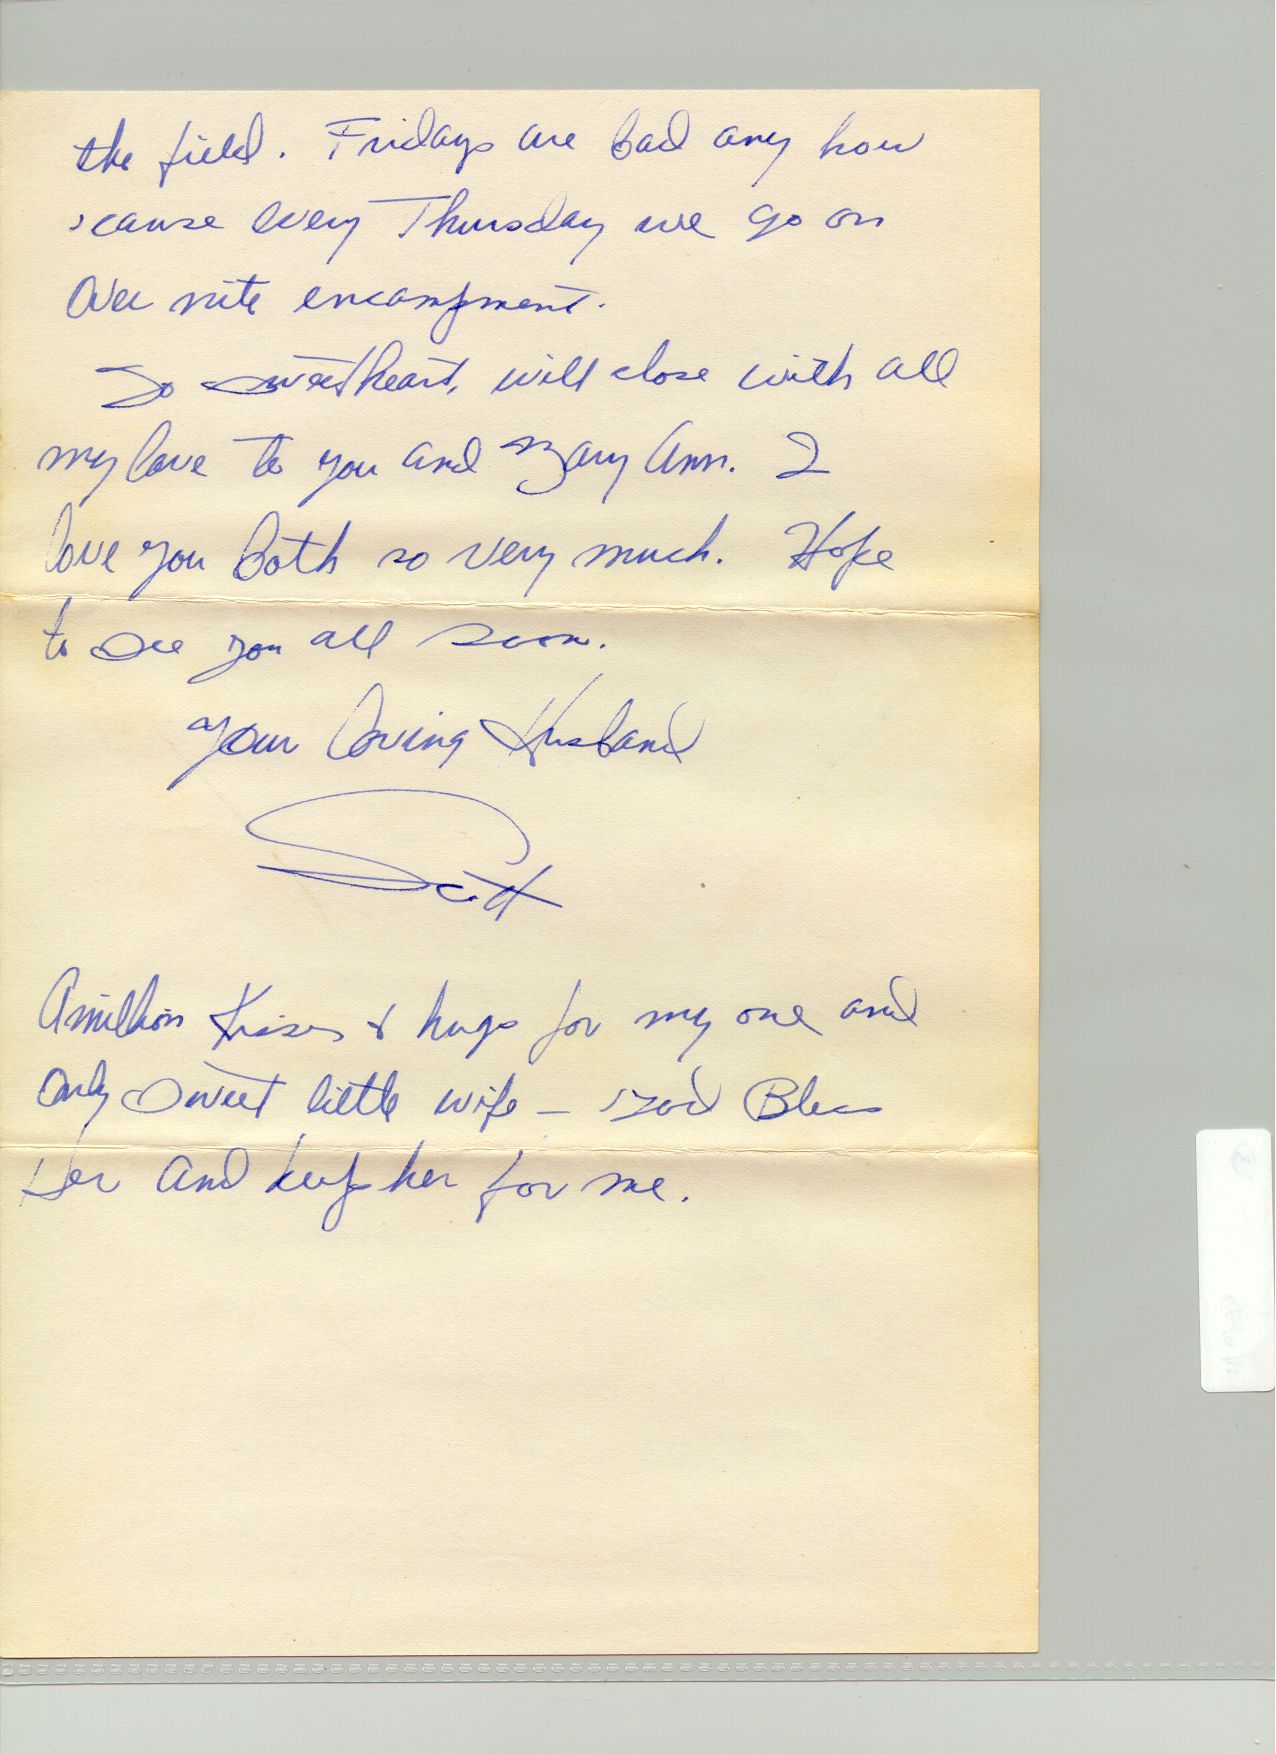 the field. Fridays are bad any how
'cause every Thursday we go on
over nite encampment.
So sweetheart, will close with all
my love to you and Mary Ann. I
love you both so very much. Hope
to see you all soon.
Your loving Husband
Scott
A million Kisses & hugs for my one and
only sweet little wife - God Bless
Her and keep her for me.